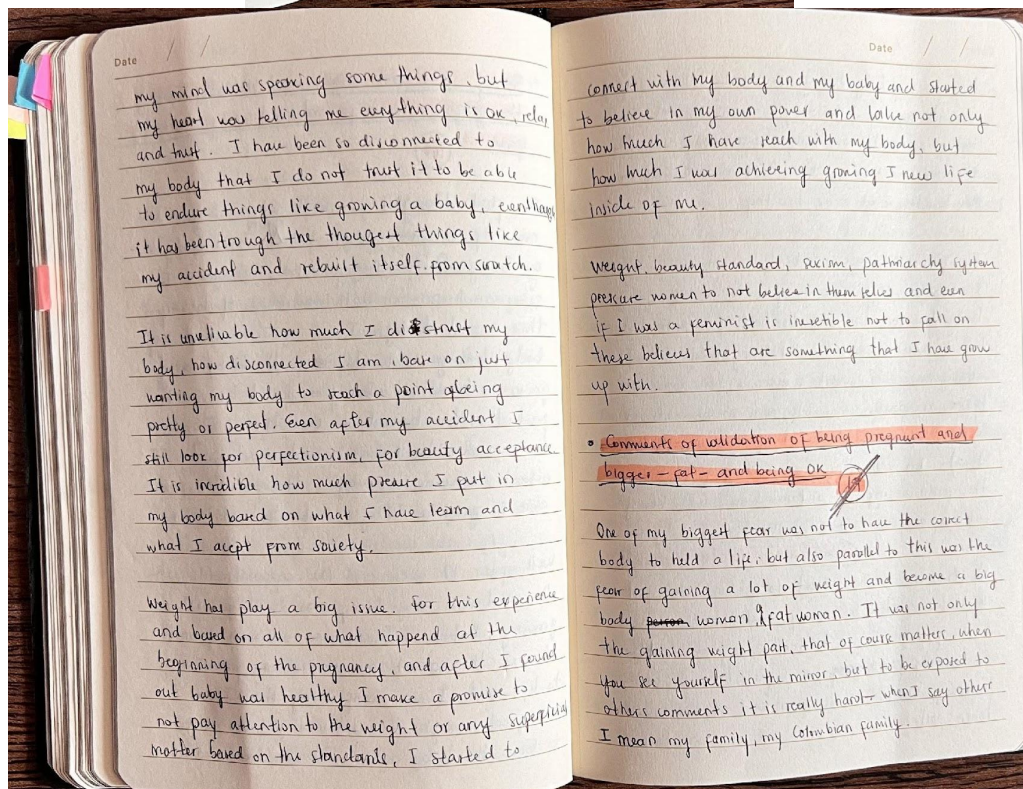 Date / /
my mind was speaking some things, but
my heart was telling me everything is OK, relax
and trust. I have been so disconnected to
my body that I do not trust it to be able
to endure things like growing a baby, eventhough
it has been trough the thoughest things like
my accident and rebuilt itself from scratch.
It is unelivable how much I distrust my
body, how disconnected I am, base on just
wanting my body to reach a point of being
pretty or perfect. Even after my accident I
still look for perfectionism, for beauty acceptance
It is incredible how much presure I put in
my body based on what I have learn and
what I acept from society.
Weight has play a big issue. For this experience
and based on all of what happend at the
beginning of the pregnancy, and after I found
out baby was healthy I make a promise to
not pay attention to the weight or any superficial
matter based on the standards, I started to
Date / /
connect with my body and my baby and started
to believe in my own power and value not only
how much I have reach with my body, but
how much I was achieving growing I new life
inside of me.
Weight, beauty standard, sexism, pathriarchy system
presure women to not believe in themselves and even
if I was a feminist is inevetible not to fall on
these believes that are something that I have grow
up with.
• Comments of validation of being pregnant and
bigger - fat - and being OK
One of my biggest fear was not to have the correct
body to held a life, but also parallel to this was the
fear of gaining a lot of weight and become a big
body person woman, a fat woman. It was not only
the gaining weight part, that of course matters, when
you see yourself in the mirror, but to be exposed to
others comments it is really hard - when I say others
I mean my family, my Colombian family.